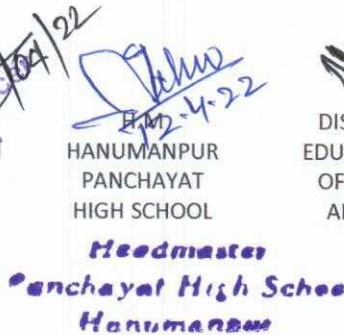 04/22
12-4-22
H.M.
HANUMANPUR
PANCHAYAT
HIGH SCHOOL
DIS
EDU
OF
A
Headmaster
Panchayat High Schoo
Hanumanpur